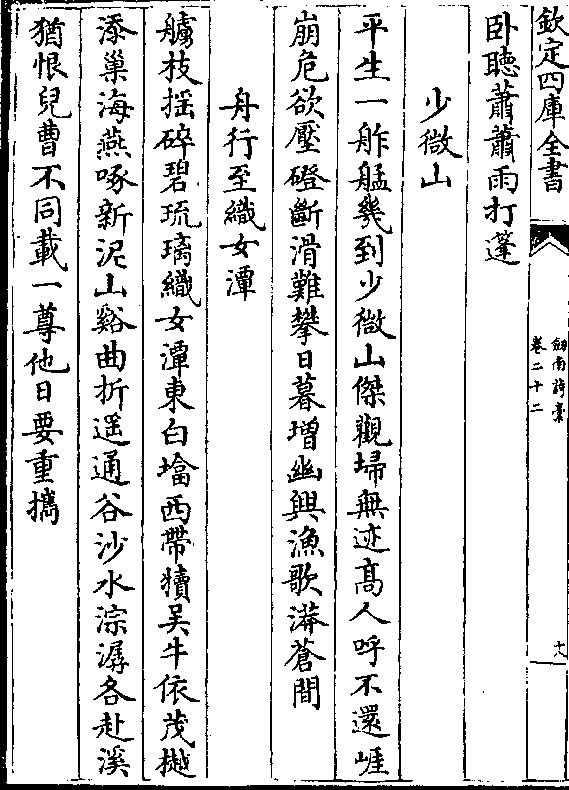 欽定四庫全書
劒南詩稾
卷二十二
十八
卧聽蕭蕭雨打蓬
少微山
平生一舴艋幾到少微山傑觀埽無迹高人呼不還崕
崩危欲壓磴斷滑難攀日暮増幽興漁歌漭蒼間
舟行至織女潭
艣枝揺碎碧琉璃織女潭東白墖西帶犢吴牛依茂樾
添巢海燕啄新泥山谿曲折遥通谷沙水淙潺各赴溪
猶恨兒曹不同載一尊他日要重攜